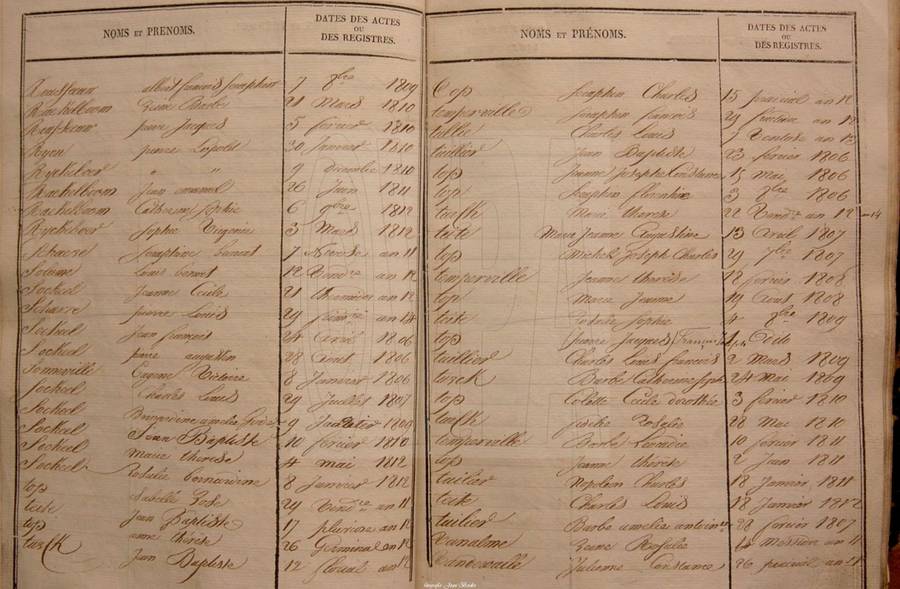 NOMS ET PRENOMS.
DATES DES ACTES
OU
DES REGISTRES.
albert francois Seraphin 7 8bre 1809
Rackelboom Barbe 21 Mars 1810
pierre Jacques 5 fevrier 1810
Ryen pierre Leopold 30 Janvier 1810
Ryckeboer " " 9 decembre 1810
Rackelboom Jean emmanuel 26 Juin 1811
Rackelboom Catherine Sophie 6 9bre 1812
Ryckeboer Sophie Eugenie 3 Mars 1812
Schaere Seraphine 7 Nivose an 11
Louis benoit 12 Vendre an 12
Sockeel Jeanne Cecile 21 thermidor an 12
Schaere pierre Louis 29 an 14
Sockeel Jean francois 24 Avril 1806
Sockeel pierre augustin 28 Aout 1806
Someville Eugene Victoire 8 Janvier 1806
Sockeel Charles Louis 29 Juillet 1807
Sockeel amelie 9 1809
Sockeel Jean Baptiste 10 fevrier 1810
Sockeel Marie thérèse 4 mai 1812
Sockeel Rosalie bernardine 8 Janvier 1812
top Isabelle Rose 24 Vendre an 11
tete Jean Baptiste 17 pluviose an 12
top anne thérèse 26 Germinal an 12
turck Jean Baptiste 12 floreal an 12
NOMS ET PRÉNOMS.
DATES DES ACTES
OU
DES REGISTRES.
top Seraphin Charles 15 prairial an 12
temperville Seraphin francois 29 frimaire an 12
Charles Louis Ventose an 13
tuillier Jean Baptiste 23 fevrier 1806
top Jeanne josephe Constance 15 Mai 1806
top Seraphin florentin 3 7bre 1806
turck Marie therese 22 Vendre an 12 14
tete Marie Jeanne Augustine 13 Avril 1807
top Michel Joseph Charles 29 7bre 1807
temperville Jeanne thérèse 12 fevrier 1808
top Marie Jeanne 19 Aout 1808
tete Rosalie Sophie 4 8bre 1809
top pierre Jacques François Dito
tuillier Charles Louis francois 2 Mars 1809
turck Barbe Catherine Sophie 24 Mai 1809
top Colette Cecile dorothée 3 fevrier 1810
turck fidelle Rosalie 28 Mai 1810
temperville Barbe Leocadie 10 fevrier 1811
top Jeanne thérèse 2 Juin 1811
tuilier Napoleon Charles 18 Janvier 1811
tete Charles Louis 18 Janvier 1812
tuilier Barbe amelie 28 fevrier 1807
Vanalme Rosalie 14 Messidor an 11
Vanderville Julienne Constance 26 prairial an 11